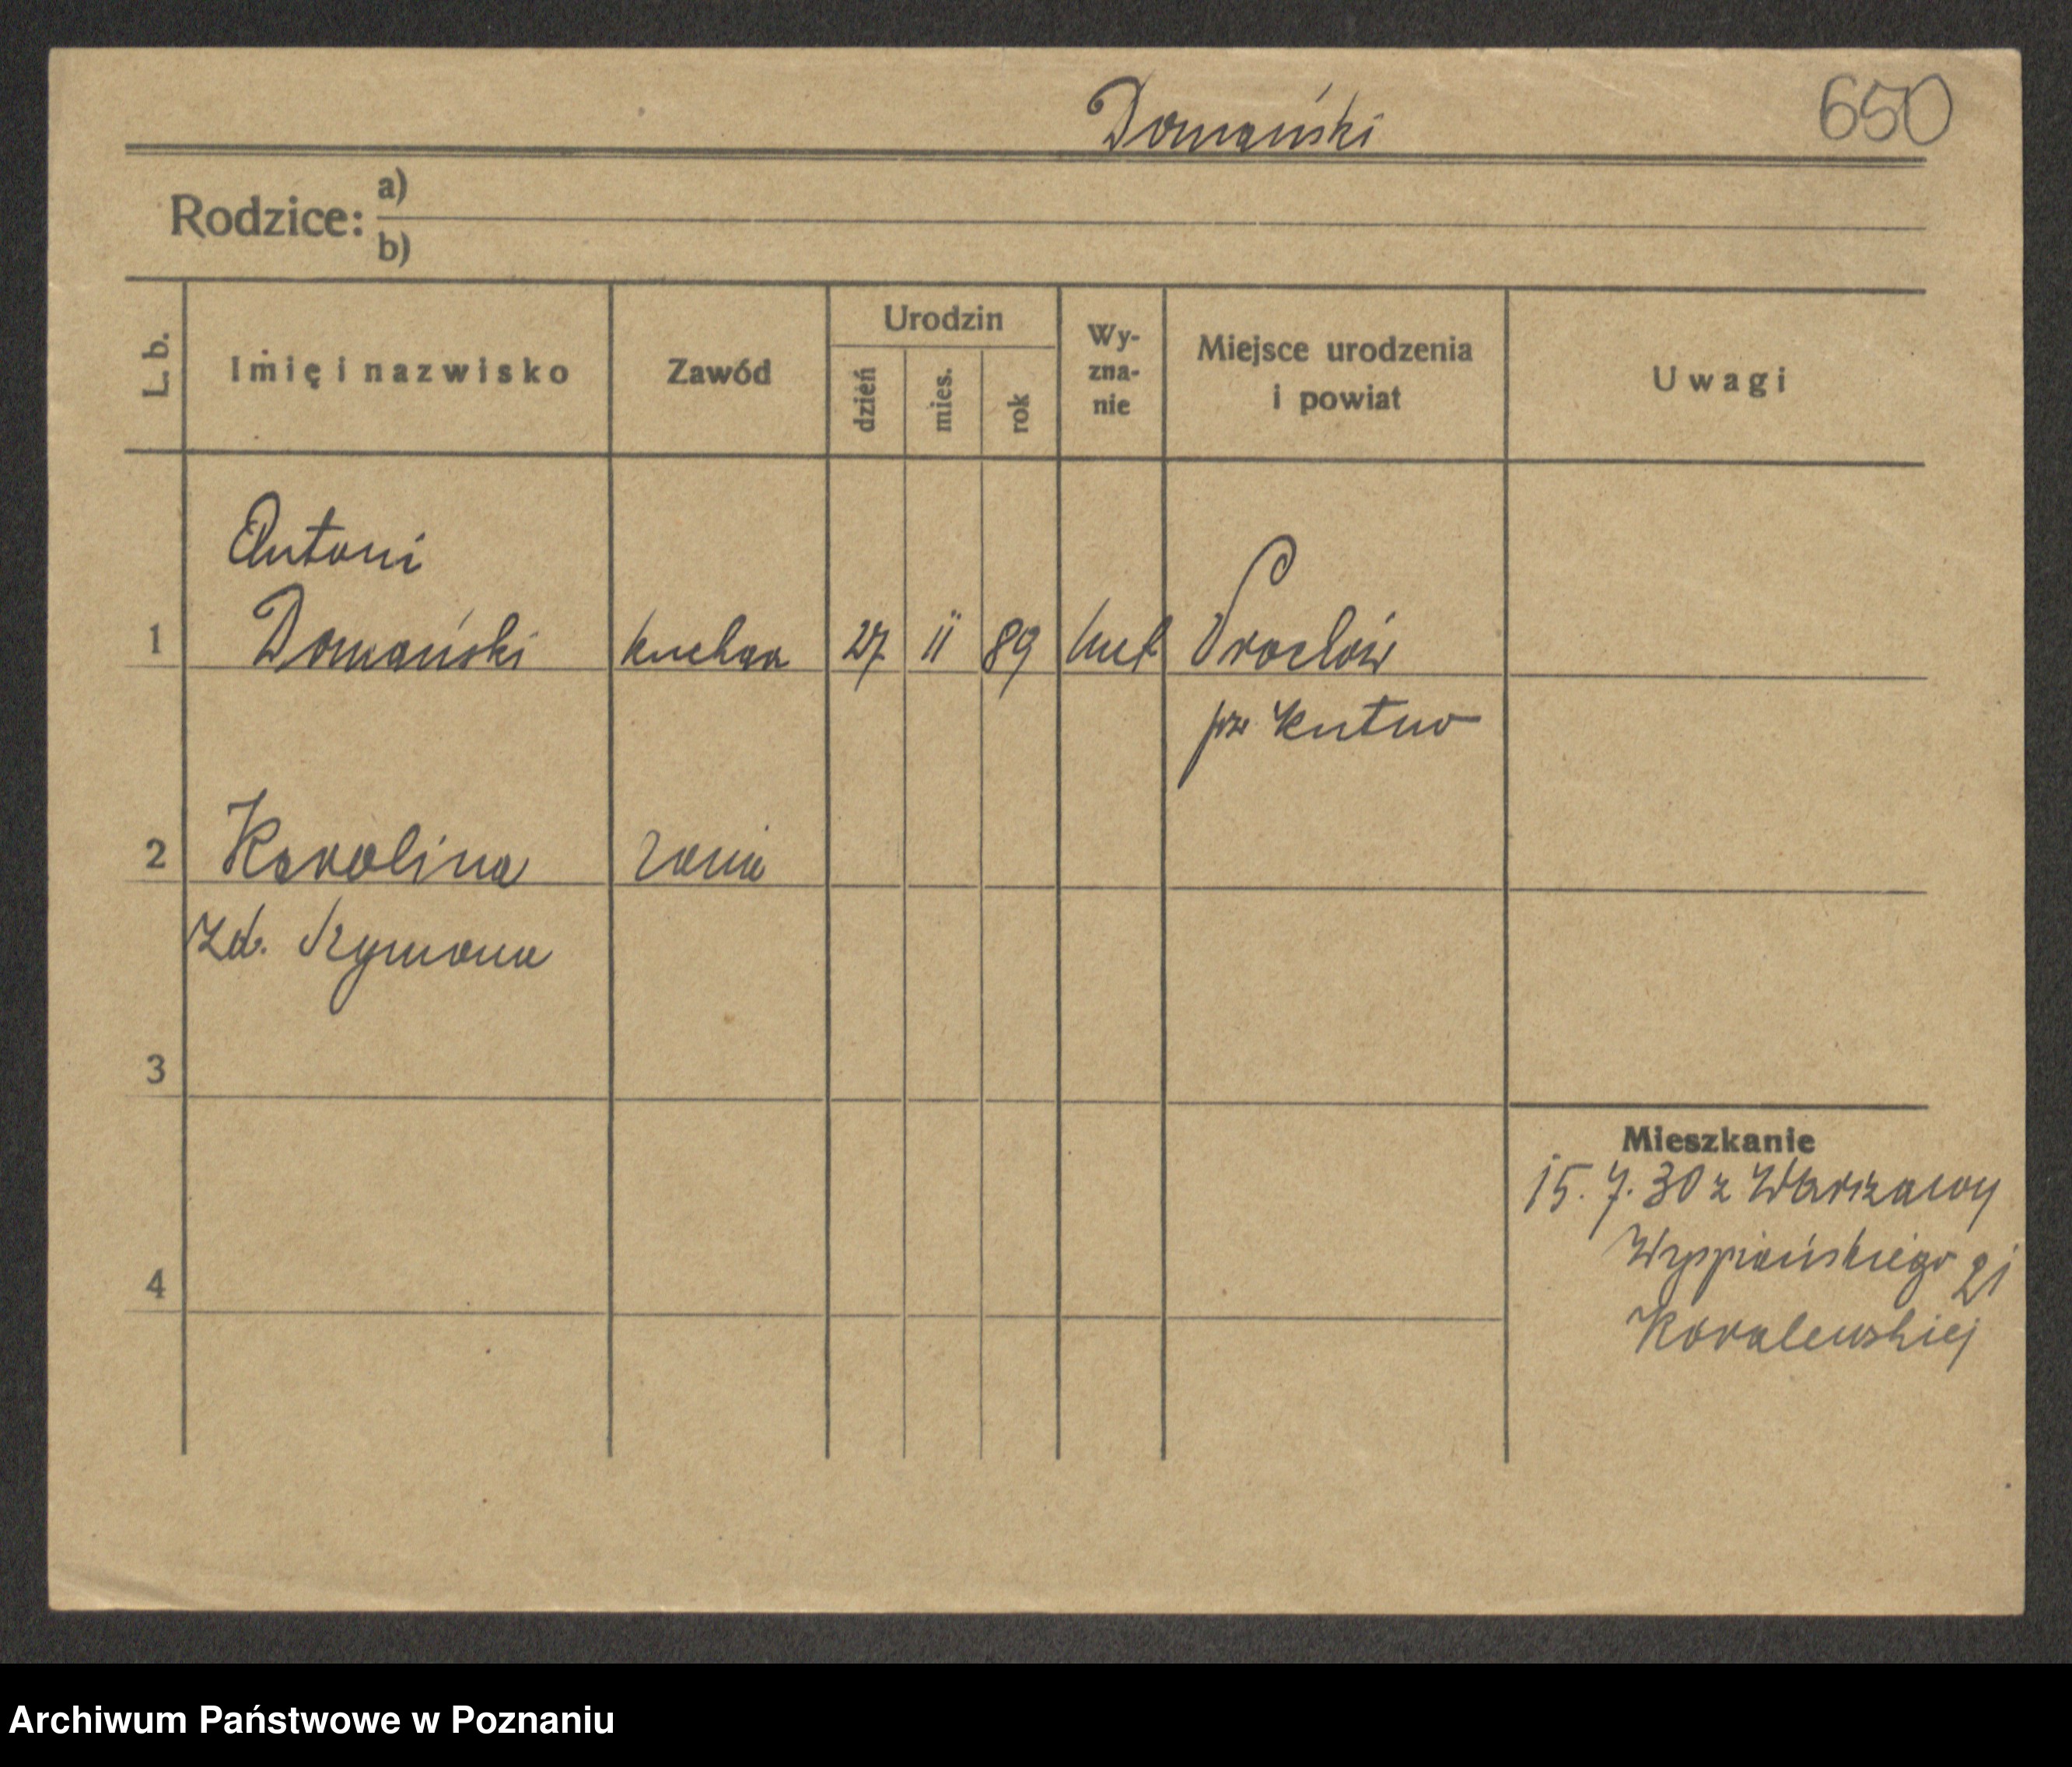 Domański
650
Rodzice:
a)
b)
L. b.
Imię i nazwisko
Zawód
Urodzin
dzień
mies.
rok
Wy-
zna-
nie
Miejsce urodzenia
i powiat
Uwagi
Antoni
1 Domański kucharz 27 II 89 Wrocłów
pw Kutno
2 Karolina
zd. Szymona
3
4
Mieszkanie
15. 7. 30 z Warszawy
Wyspiańskiego 21
Kowalewskiej
Archiwum Państwowe w Poznaniu